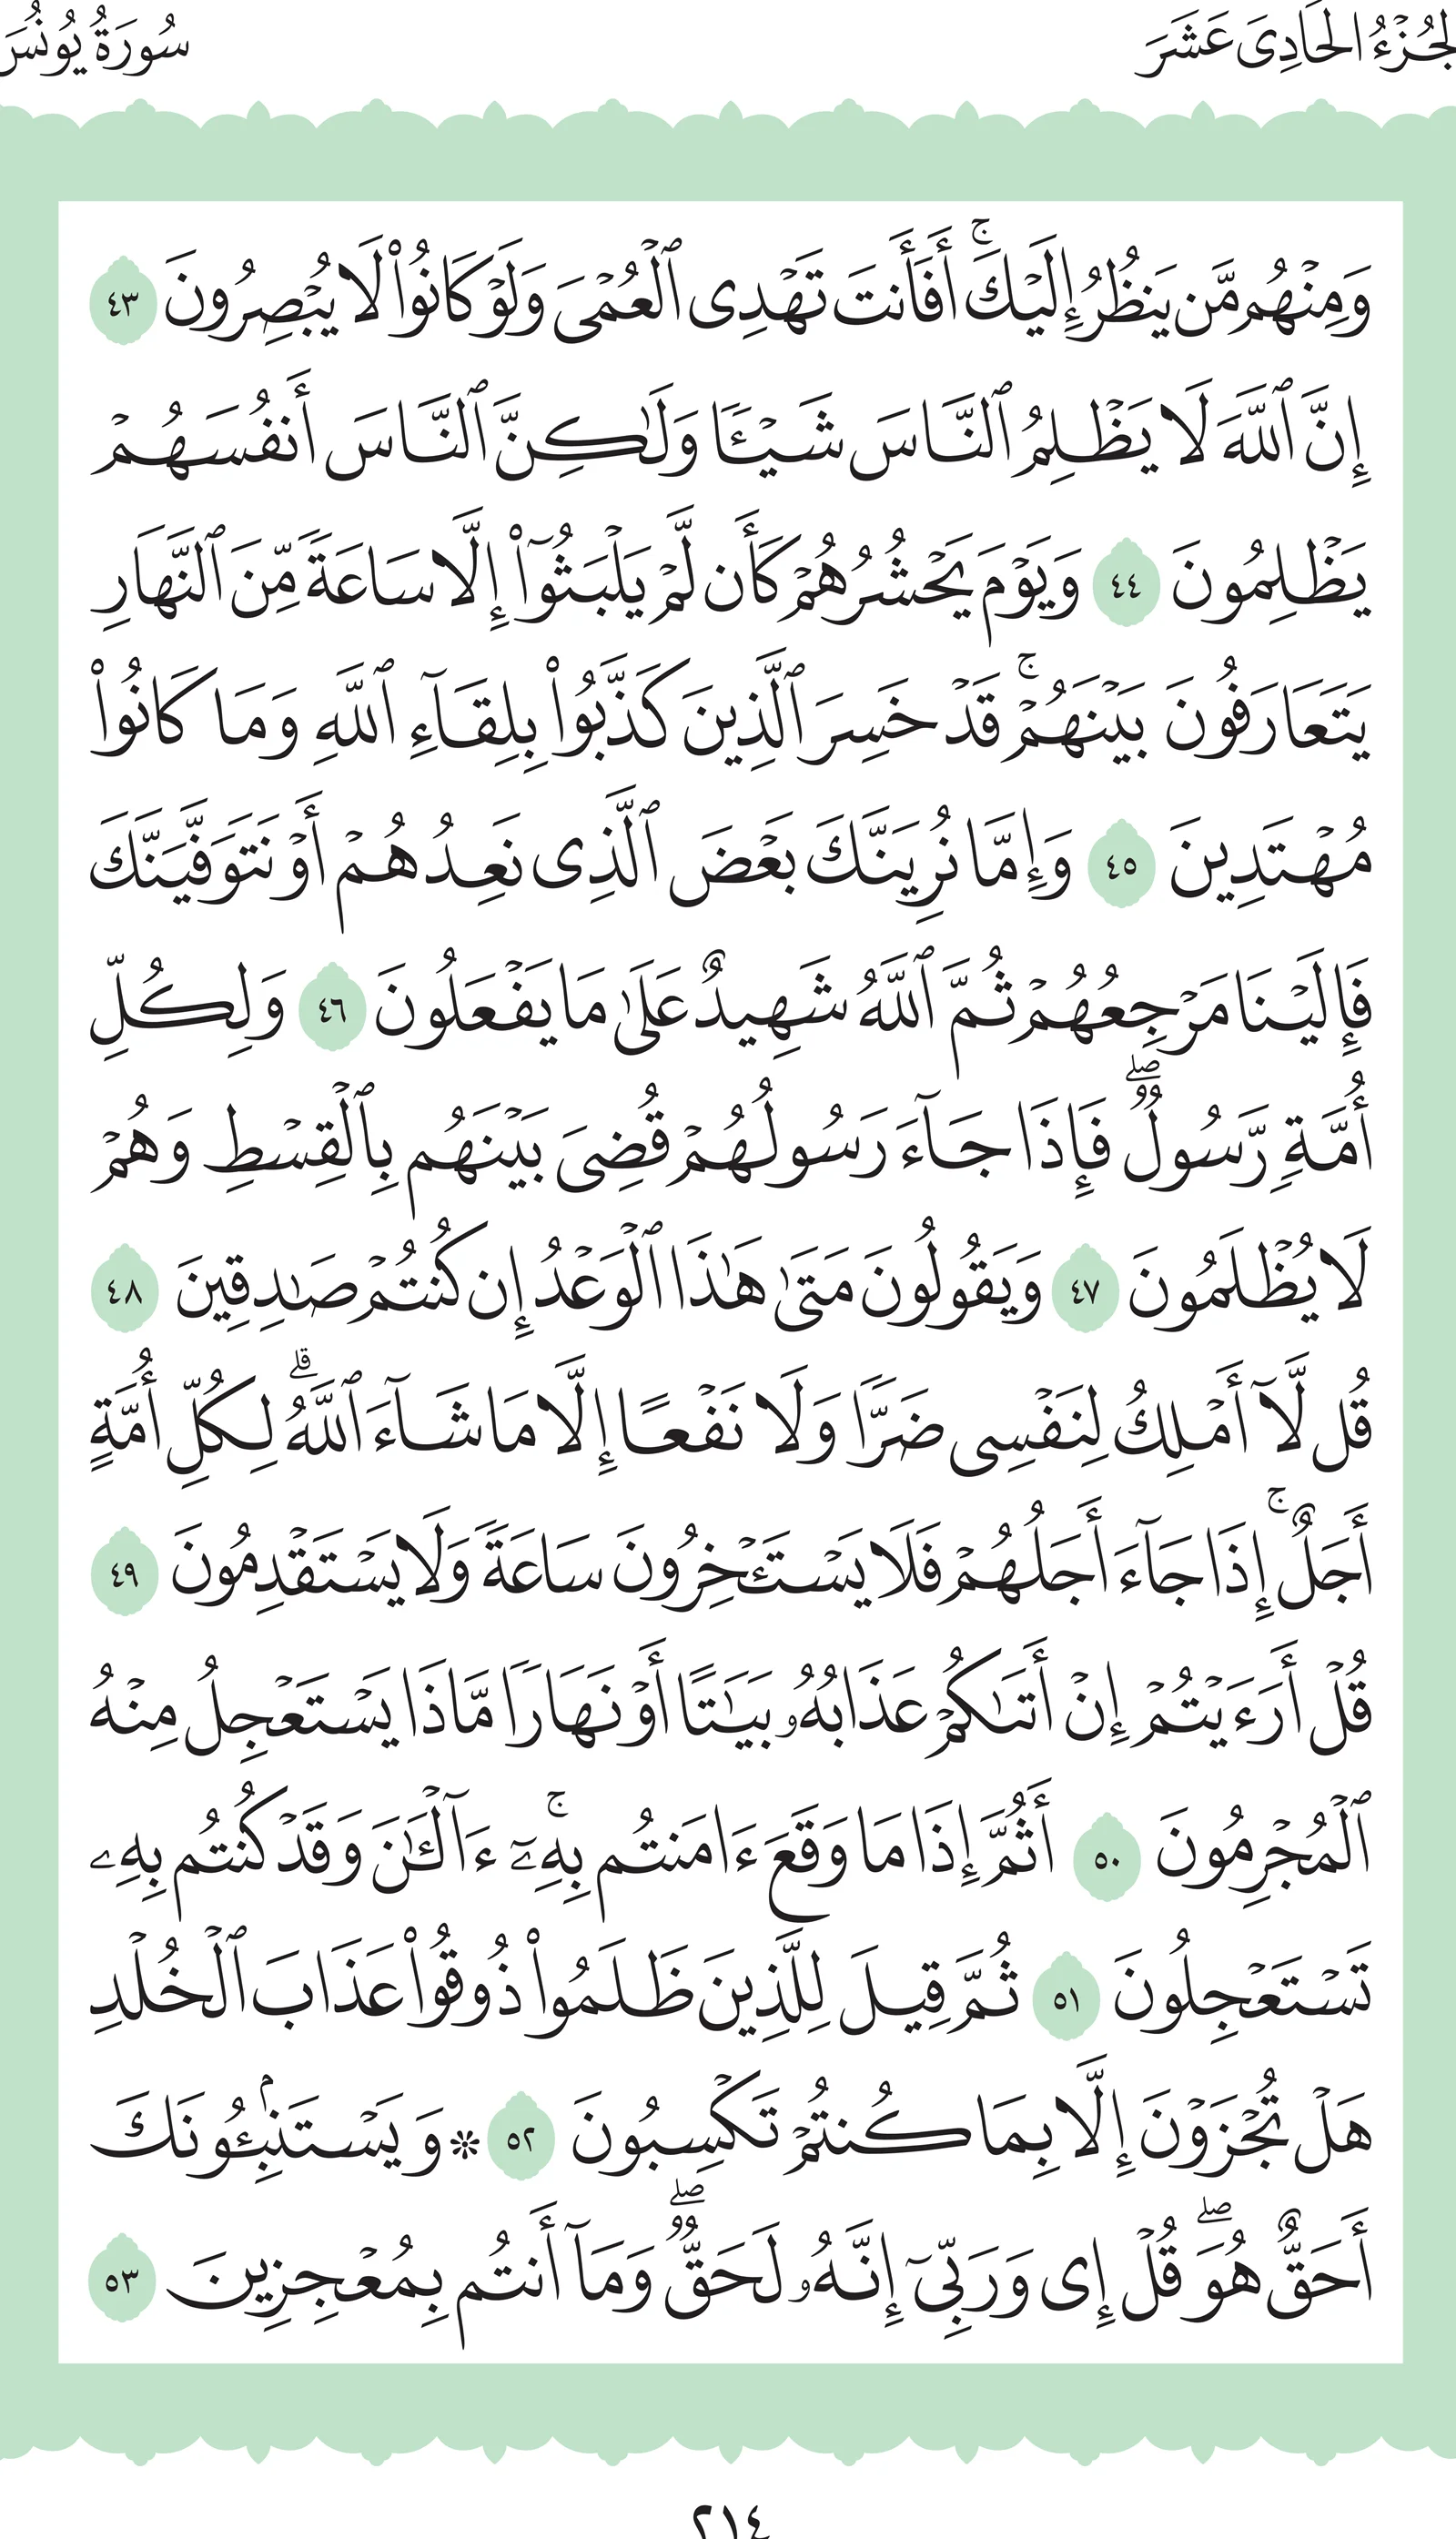 الجُزْءُ الحَادِىَ عَشَرَ
سُورَةُ يُونُسَ
وَمِنْهُم مَّن يَنظُرُ إِلَيْكَۚ أَفَأَنتَ تَهْدِى ٱلْعُمْىَ وَلَوْ كَانُوا۟ لَا يُبْصِرُونَ ٤٣
إِنَّ ٱللَّهَ لَا يَظْلِمُ ٱلنَّاسَ شَيْـًٔا وَلَـٰكِنَّ ٱلنَّاسَ أَنفُسَهُمْ
يَظْلِمُونَ ٤٤ وَيَوْمَ يَحْشُرُهُمْ كَأَن لَّمْ يَلْبَثُوٓا۟ إِلَّا سَاعَةً مِّنَ ٱلنَّهَارِ
يَتَعَارَفُونَ بَيْنَهُمْۚ قَدْ خَسِرَ ٱلَّذِينَ كَذَّبُوا۟ بِلِقَآءِ ٱللَّهِ وَمَا كَانُوا۟
مُهْتَدِينَ ٤٥ وَإِمَّا نُرِيَنَّكَ بَعْضَ ٱلَّذِى نَعِدُهُمْ أَوْ نَتَوَفَّيَنَّكَ
فَإِلَيْنَا مَرْجِعُهُمْ ثُمَّ ٱللَّهُ شَهِيدٌ عَلَىٰ مَا يَفْعَلُونَ ٤٦ وَلِكُلِّ
أُمَّةٍ رَّسُولٌۖ فَإِذَا جَآءَ رَسُولُهُمْ قُضِىَ بَيْنَهُم بِٱلْقِسْطِ وَهُمْ
لَا يُظْلَمُونَ ٤٧ وَيَقُولُونَ مَتَىٰ هَـٰذَا ٱلْوَعْدُ إِن كُنتُمْ صَـٰدِقِينَ ٤٨
قُل لَّآ أَمْلِكُ لِنَفْسِى ضَرًّا وَلَا نَفْعًا إِلَّا مَا شَآءَ ٱللَّهُۗ لِكُلِّ أُمَّةٍ
أَجَلٌۚ إِذَا جَآءَ أَجَلُهُمْ فَلَا يَسْتَـْٔخِرُونَ سَاعَةً وَلَا يَسْتَقْدِمُونَ ٤٩
قُلْ أَرَءَيْتُمْ إِنْ أَتَىٰكُمْ عَذَابُهُۥ بَيَـٰتًا أَوْ نَهَارًا مَّاذَا يَسْتَعْجِلُ مِنْهُ
ٱلْمُجْرِمُونَ ٥٠ أَثُمَّ إِذَا مَا وَقَعَ ءَامَنتُم بِهِۦٓۚ ءَآلْـَٔـٰنَ وَقَدْ كُنتُم بِهِۦ
تَسْتَعْجِلُونَ ٥١ ثُمَّ قِيلَ لِلَّذِينَ ظَلَمُوا۟ ذُوقُوا۟ عَذَابَ ٱلْخُلْدِ
هَلْ تُجْزَوْنَ إِلَّا بِمَا كُنتُمْ تَكْسِبُونَ ٥٢ ۞ وَيَسْتَنۢبِـُٔونَكَ
أَحَقٌّ هُوَۖ قُلْ إِى وَرَبِّىٓ إِنَّهُۥ لَحَقٌّۖ وَمَآ أَنتُم بِمُعْجِزِينَ ٥٣
٢١٤